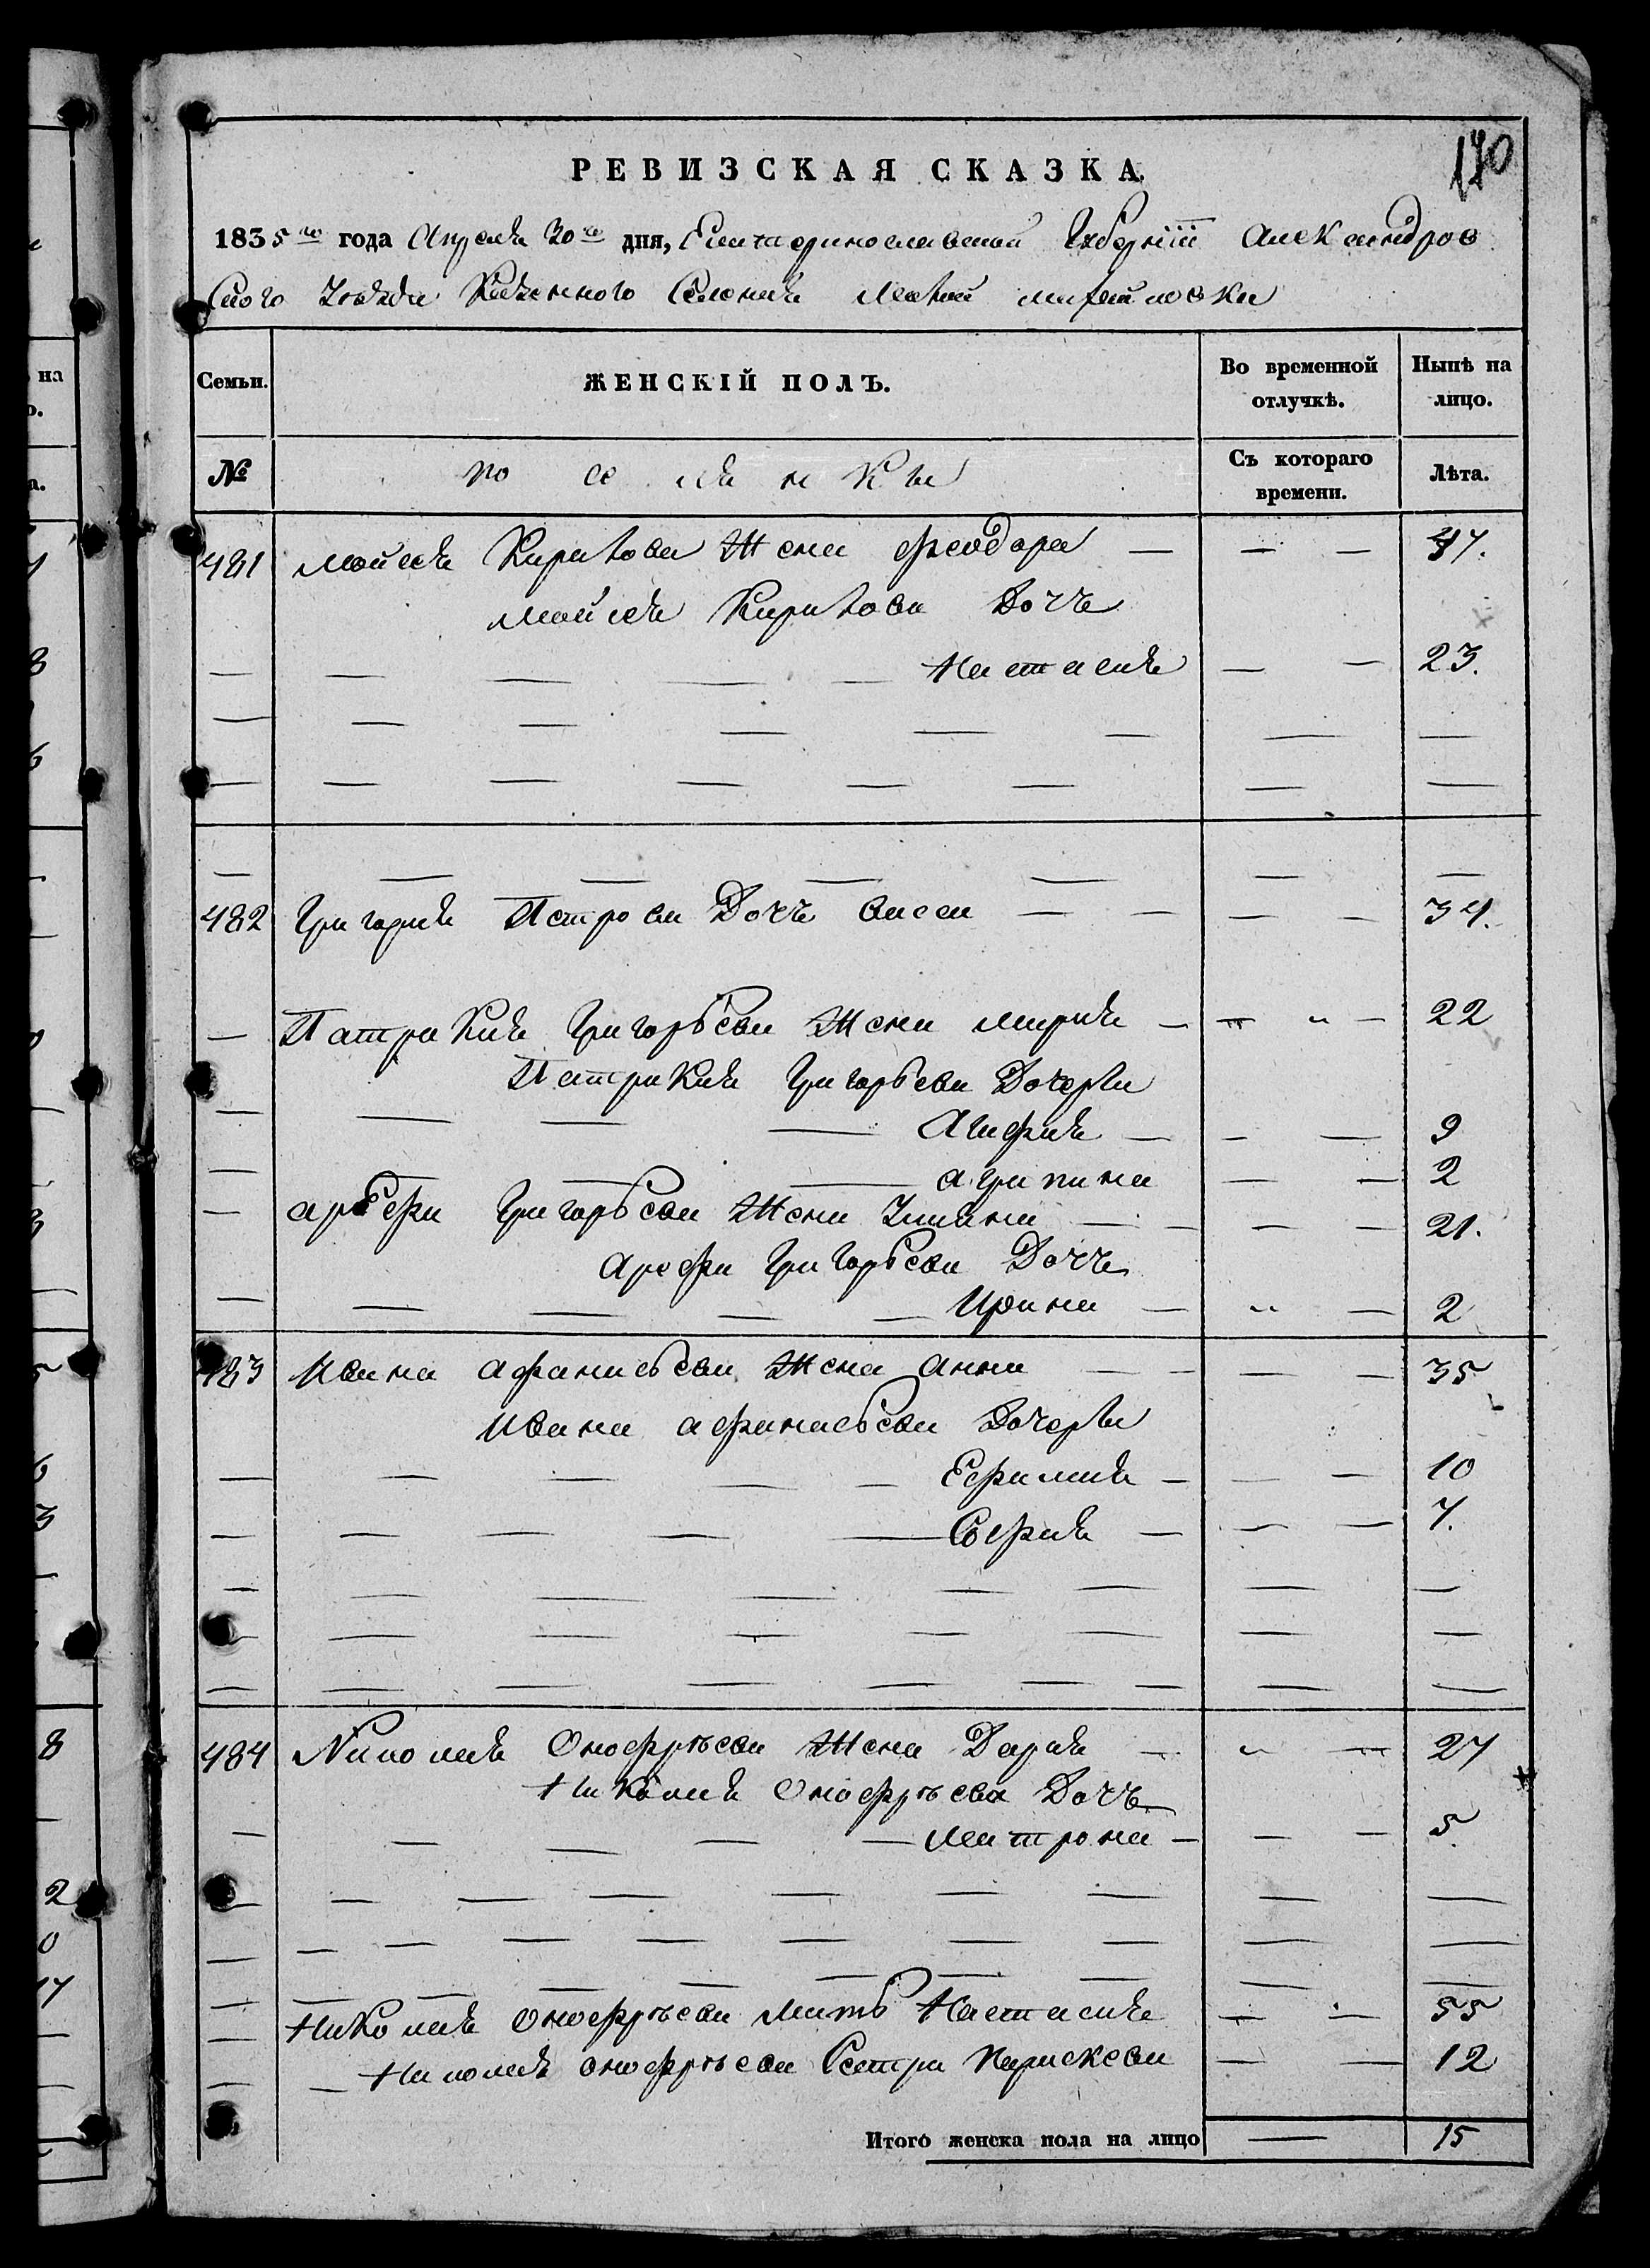 170
РЕВИЗСКАЯ СКАЗКА.
1835 го года Апреля 30 го дня, Екатеринославской Губерніи Александров
ского Уезда Казенного Селения Малой михайловки
Семьи.
ЖЕНСКІЙ ПОЛЪ.
Во временной отлучкѣ.
Нынѣ на лицо.
№
поселянки
Съ котораго времени.
Лѣта.
481 мойсея Кирилова Жена феодора — — — 47.
мойсея Кирилова Дочь
— — — — — Настасия — — 23.
482 Григория Петрова Дочь васса — — — — 34.
— Патрикия Григорьева Жена мария — — " — 22
Патрикия Григорьева Дочери
— — — — Агафия — — — 9
— — — — агрипина — — 2
— арефи Григорьева Жена Улияна — — — — 21.
арефи Григорьева Дочь
— — — — — Ирина — " — 2
483 Ивана афанасьева Жена анна — — — — 35
Ивана афанасьева Дочери
— — — — — Ефимия — — — 10
— — — — — София — — — 7.
484 Николая Онофрѣева Жена Дария — " — 27
Николая Онофрѣева Дочь
— — — — — Матрона — — — 5.
— Николая Онофрѣева Мать Настасия — — 55
— — Николая онофрѣева Сестра Параскева — — 12
Итого женска пола на лицо — 15